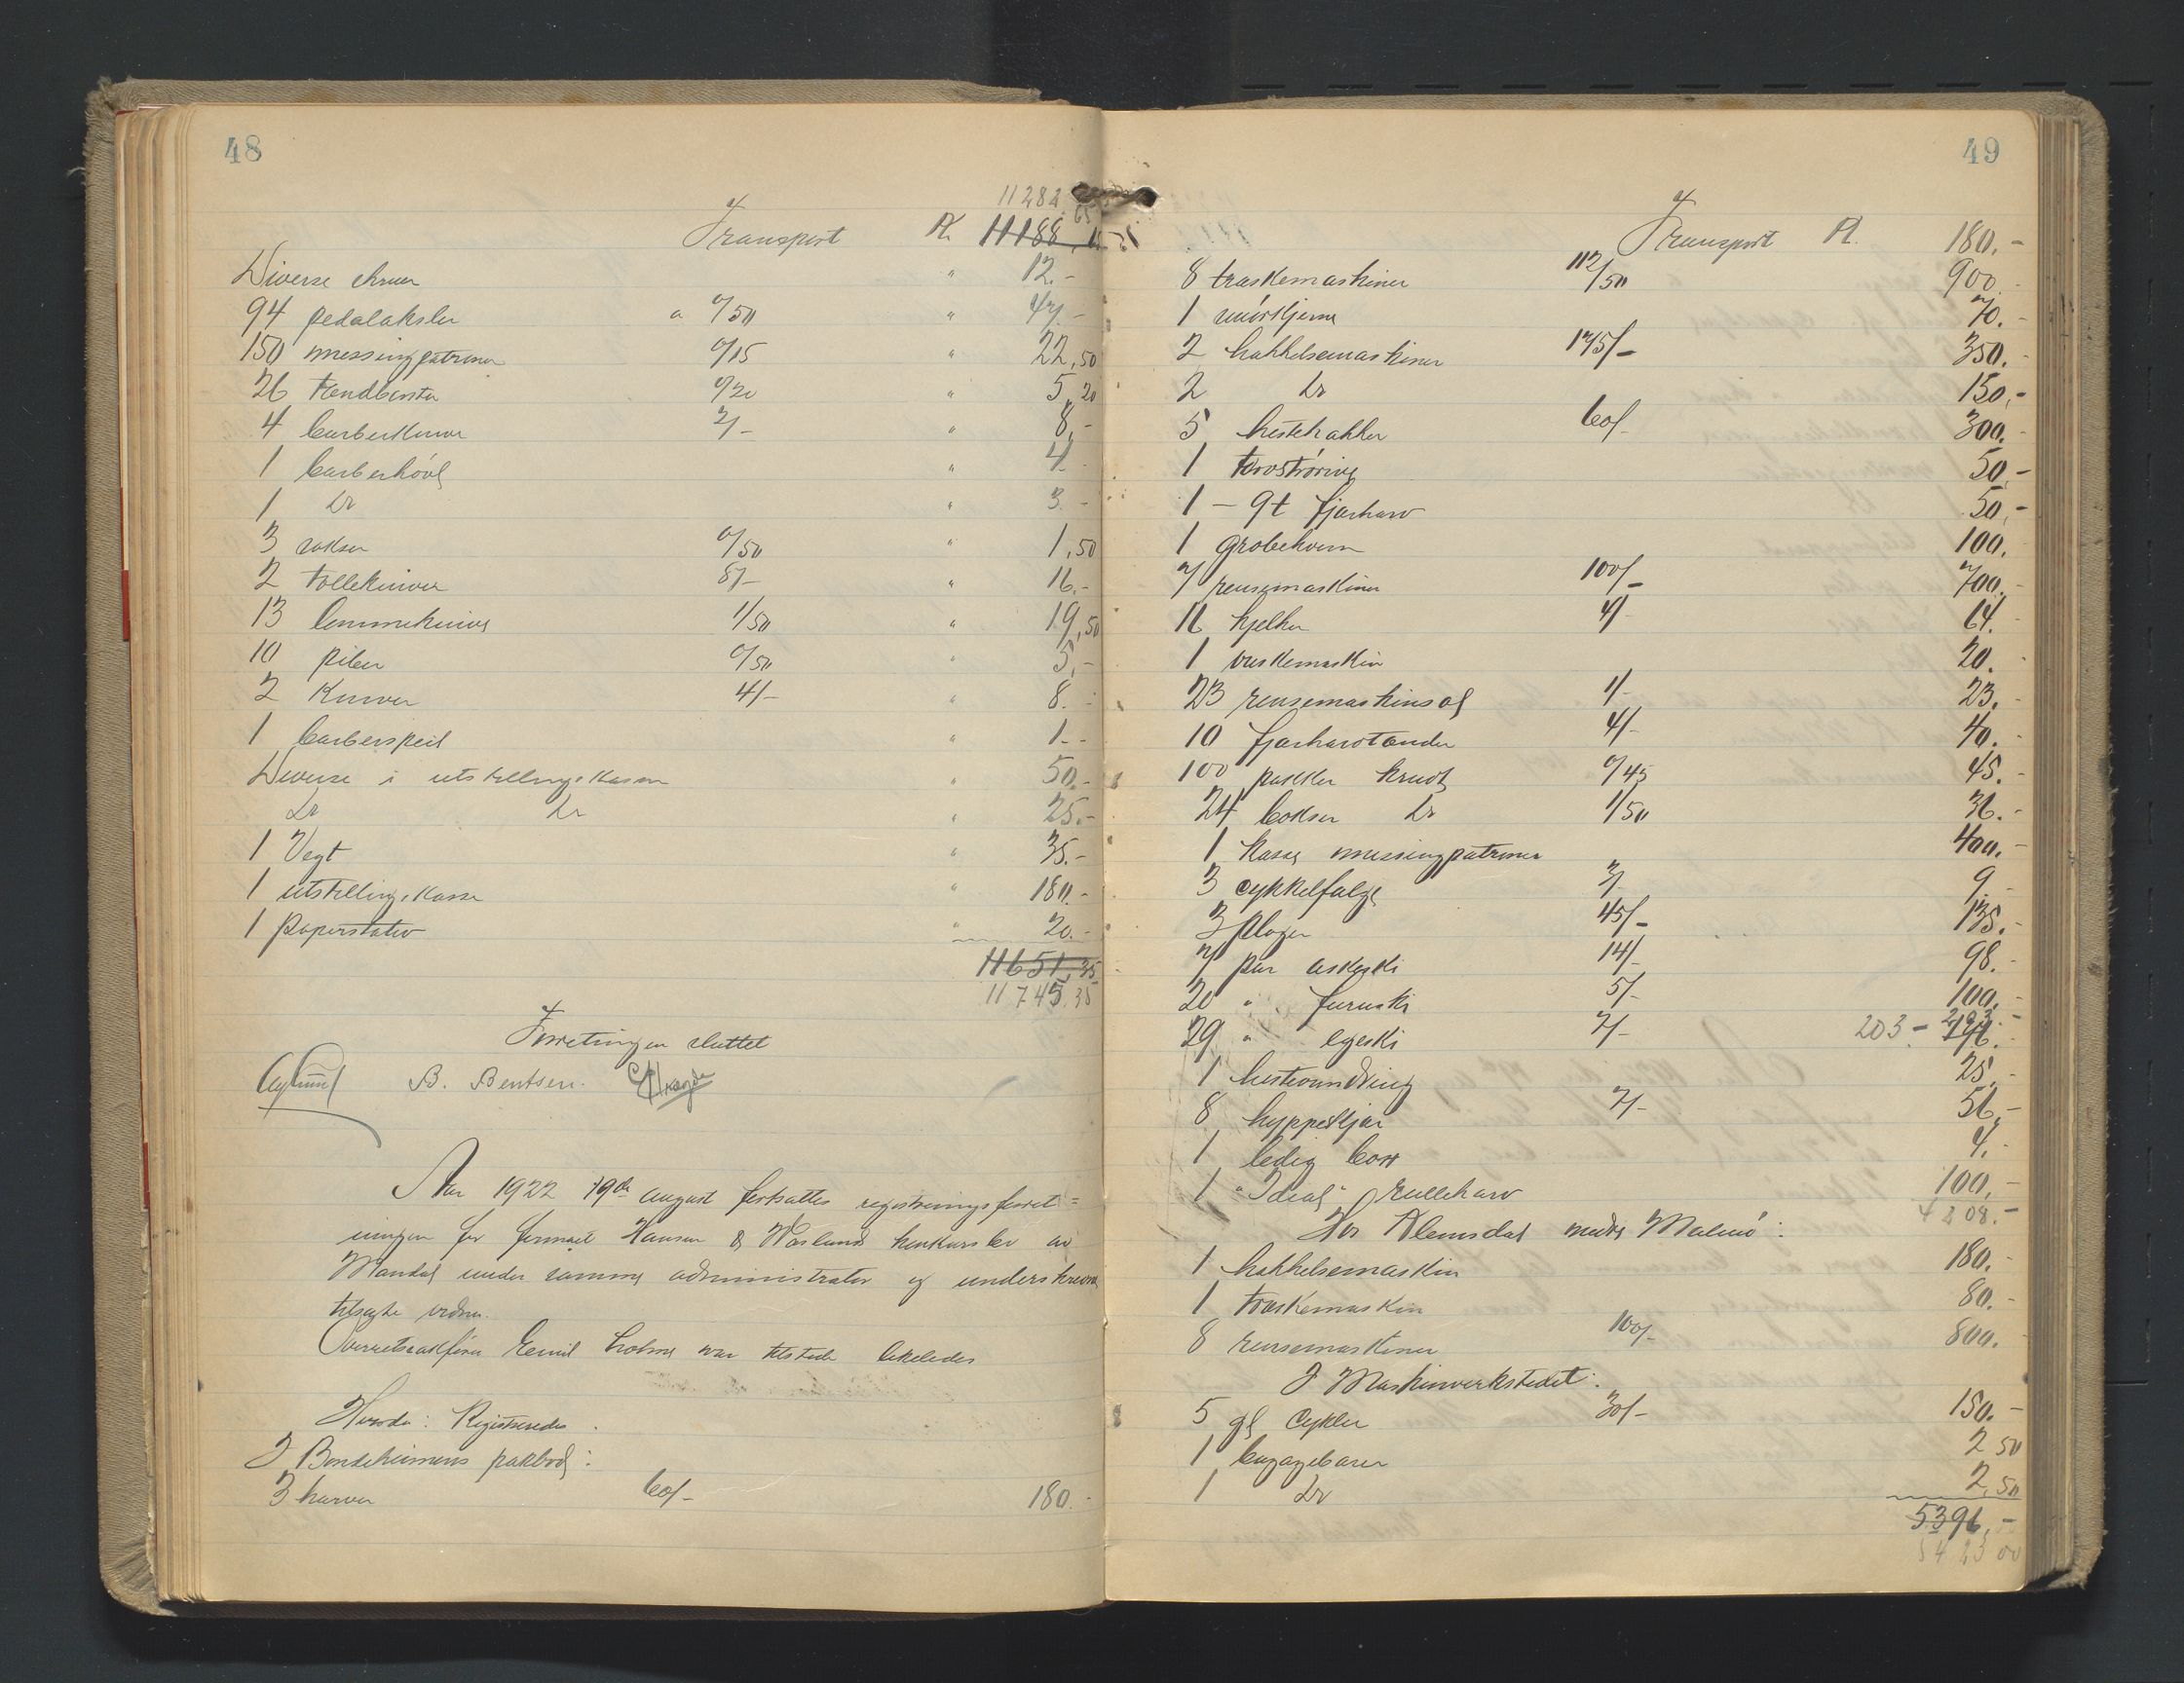 48
11282 65
Transport Kr. 11188,
Diverse skruer " 12.-
94 pedalaksler a 0/50 " 47.-
150 messingpatroner 0/15 " 22,50
26 tandbørster 0/20 " 5,20
4 barberkniver 2/- " 8,-
1 barberhøvl " 4.-
1 Do " 3.-
3 sakser 0/50 " 1,50
2 tolleknive 8/- " 16.-
13 lommeknive 1/50 " 19,50
10 piber 0/50 " 5,-
2 Kurver 4/- " 8.-
1 barberspeil " 1.-
Diverse i utstillingskassen " 50.-
Do Do " 25.-
1 Vegt " 35.-
1 utstillingskasse " 180.-
1 papirstativ " 20.-
11651,35
11745.35
Forretningen sluttet
B. Bentsen.
Aar 1922 19de august fortsattes registreringsforret=
ningen for firmaet Hansen & Haslunds konkursbo av
Mandal under samme administrator og underskrevne
tilsagte vidner.
Overretssakfører Emil Holme var tilstede likeledes
Herved: Registreredes.
I Bondeheimens pakbod:
3 harver 60/- 180.-
49
Transport Kr. 180.-
8 træskemaskiner 112/50 900.-
1 smørkjerne 70.-
2 hakkelsemaskiner 175/- 350.-
2 Do 150,-
5 hestehakker 60/- 300.-
1 torvstrøriver 50,-
1 - 9t fjærharv 50,-
1 grøbekvern 100.-
7 rensemaskiner 100/- 700.-
16 kjelker 4/- 64.-
1 vaskemaskin 20.-
23 rensemaskinsol 1/- 23.-
10 fjærharvtænder 4/- 40.-
100 pakker krudt 0/45 45.-
24 bokser Do 1/50 36.-
1 kasse messingpatroner 400.-
3 cykkelfælge 3/- 9.-
3 ploger 45/- 135.-
7 par askeski 14/- 98.-
20 " furuski 5/- 100.-
29 " egeski 7/- 203.- 203.-
1 hestevandring 25.-
8 hyppeskjær 7/- 56,-
1 ledig bor 4.-
1 "Ideal" rulleharv 100,-
4208.-
Hos Klemsdal nedre Malmø:
1 hakkelsemaskin 180.-
1 træskemaskin 80.-
8 rensemaskiner 100/- 800.-
I Maskinverkstedet:
5 gl Cykler 30/- 150.-
1 bagagebærer 2 50
1 Do 2,50
5396,-
5423 00